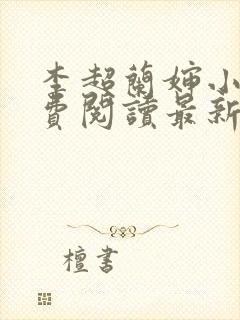 李超蘭嬸小
費閱讀最新
檀書